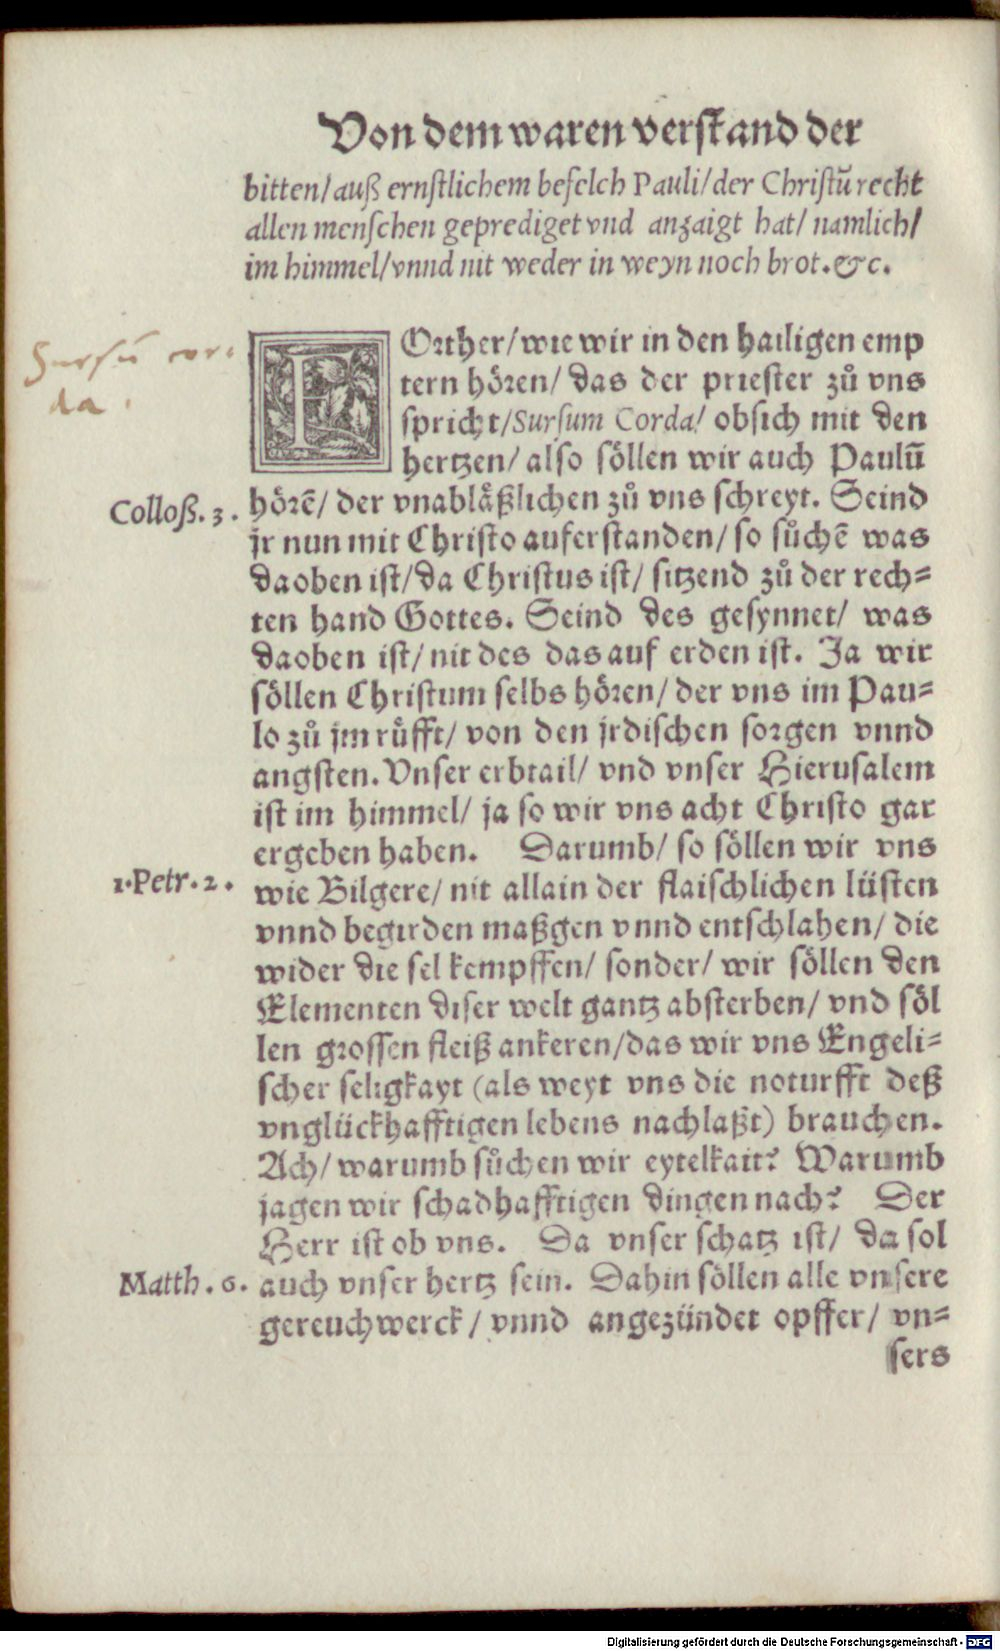 Von dem waren verstand der
bitten/ auß ernstlichem befelch Pauli/ der Christū recht
allen menschen geprediget vnd anzaigt hat/ namlich/
im himmel/ vnnd nit weder in weyn noch brot. &c.
FOrther/ wie wir in den hailigen emp
Sursū cor-
tern hören/ das der priester zů vns
da.
spricht/ Sursum Corda/ obsich mit den
hertzen/ also söllen wir auch Paulū
Colloß. 3.
hörē/ der vnabläßlichen zů vns schreyt. Seind
jr nun mit Christo auferstanden/ so sůchē was
daoben ist/ da Christus ist/ sitzend zů der rech-
ten hand Gottes. Seind des gesynnet/ was
daoben ist/ nit des das auf erden ist. Ja wir
söllen Christum selbs hören/ der vns im Pau-
lo zů jm růfft/ von den jrdischen sorgen vnnd
angsten. Vnser erbtail/ vnd vnser Hierusalem
ist im himmel/ ja so wir vns acht Christo gar
ergeben haben. Darumb/ so söllen wir vns
1. Petr. 2.
wie Bilgere/ nit allain der flaischlichen lüsten
vnnd begirden maßgen vnnd entschlahen/ die
wider die sel kempffen/ sonder/ wir söllen den
Elementen diser welt gantz absterben/ vnd söl
len grossen fleiß ankeren/ das wir vns Engeli-
scher seligkayt (als weyt vns die noturfft deß
vnglückhafftigen lebens nachlaßt) brauchen.
Ach/ warumb sůchen wir eytelkait? Warumb
jagen wir schadhafftigen dingen nach? Der
Herr ist ob vns. Da vnser schatz ist/ da sol
Matth. 6.
auch vnser hertz sein. Dahin söllen alle vnsere
gereuchwerck/ vnnd angezündet opffer/ vn-
sers
Digitalisierung gefördert durch die Deutsche Forschungsgemeinschaft - DFG